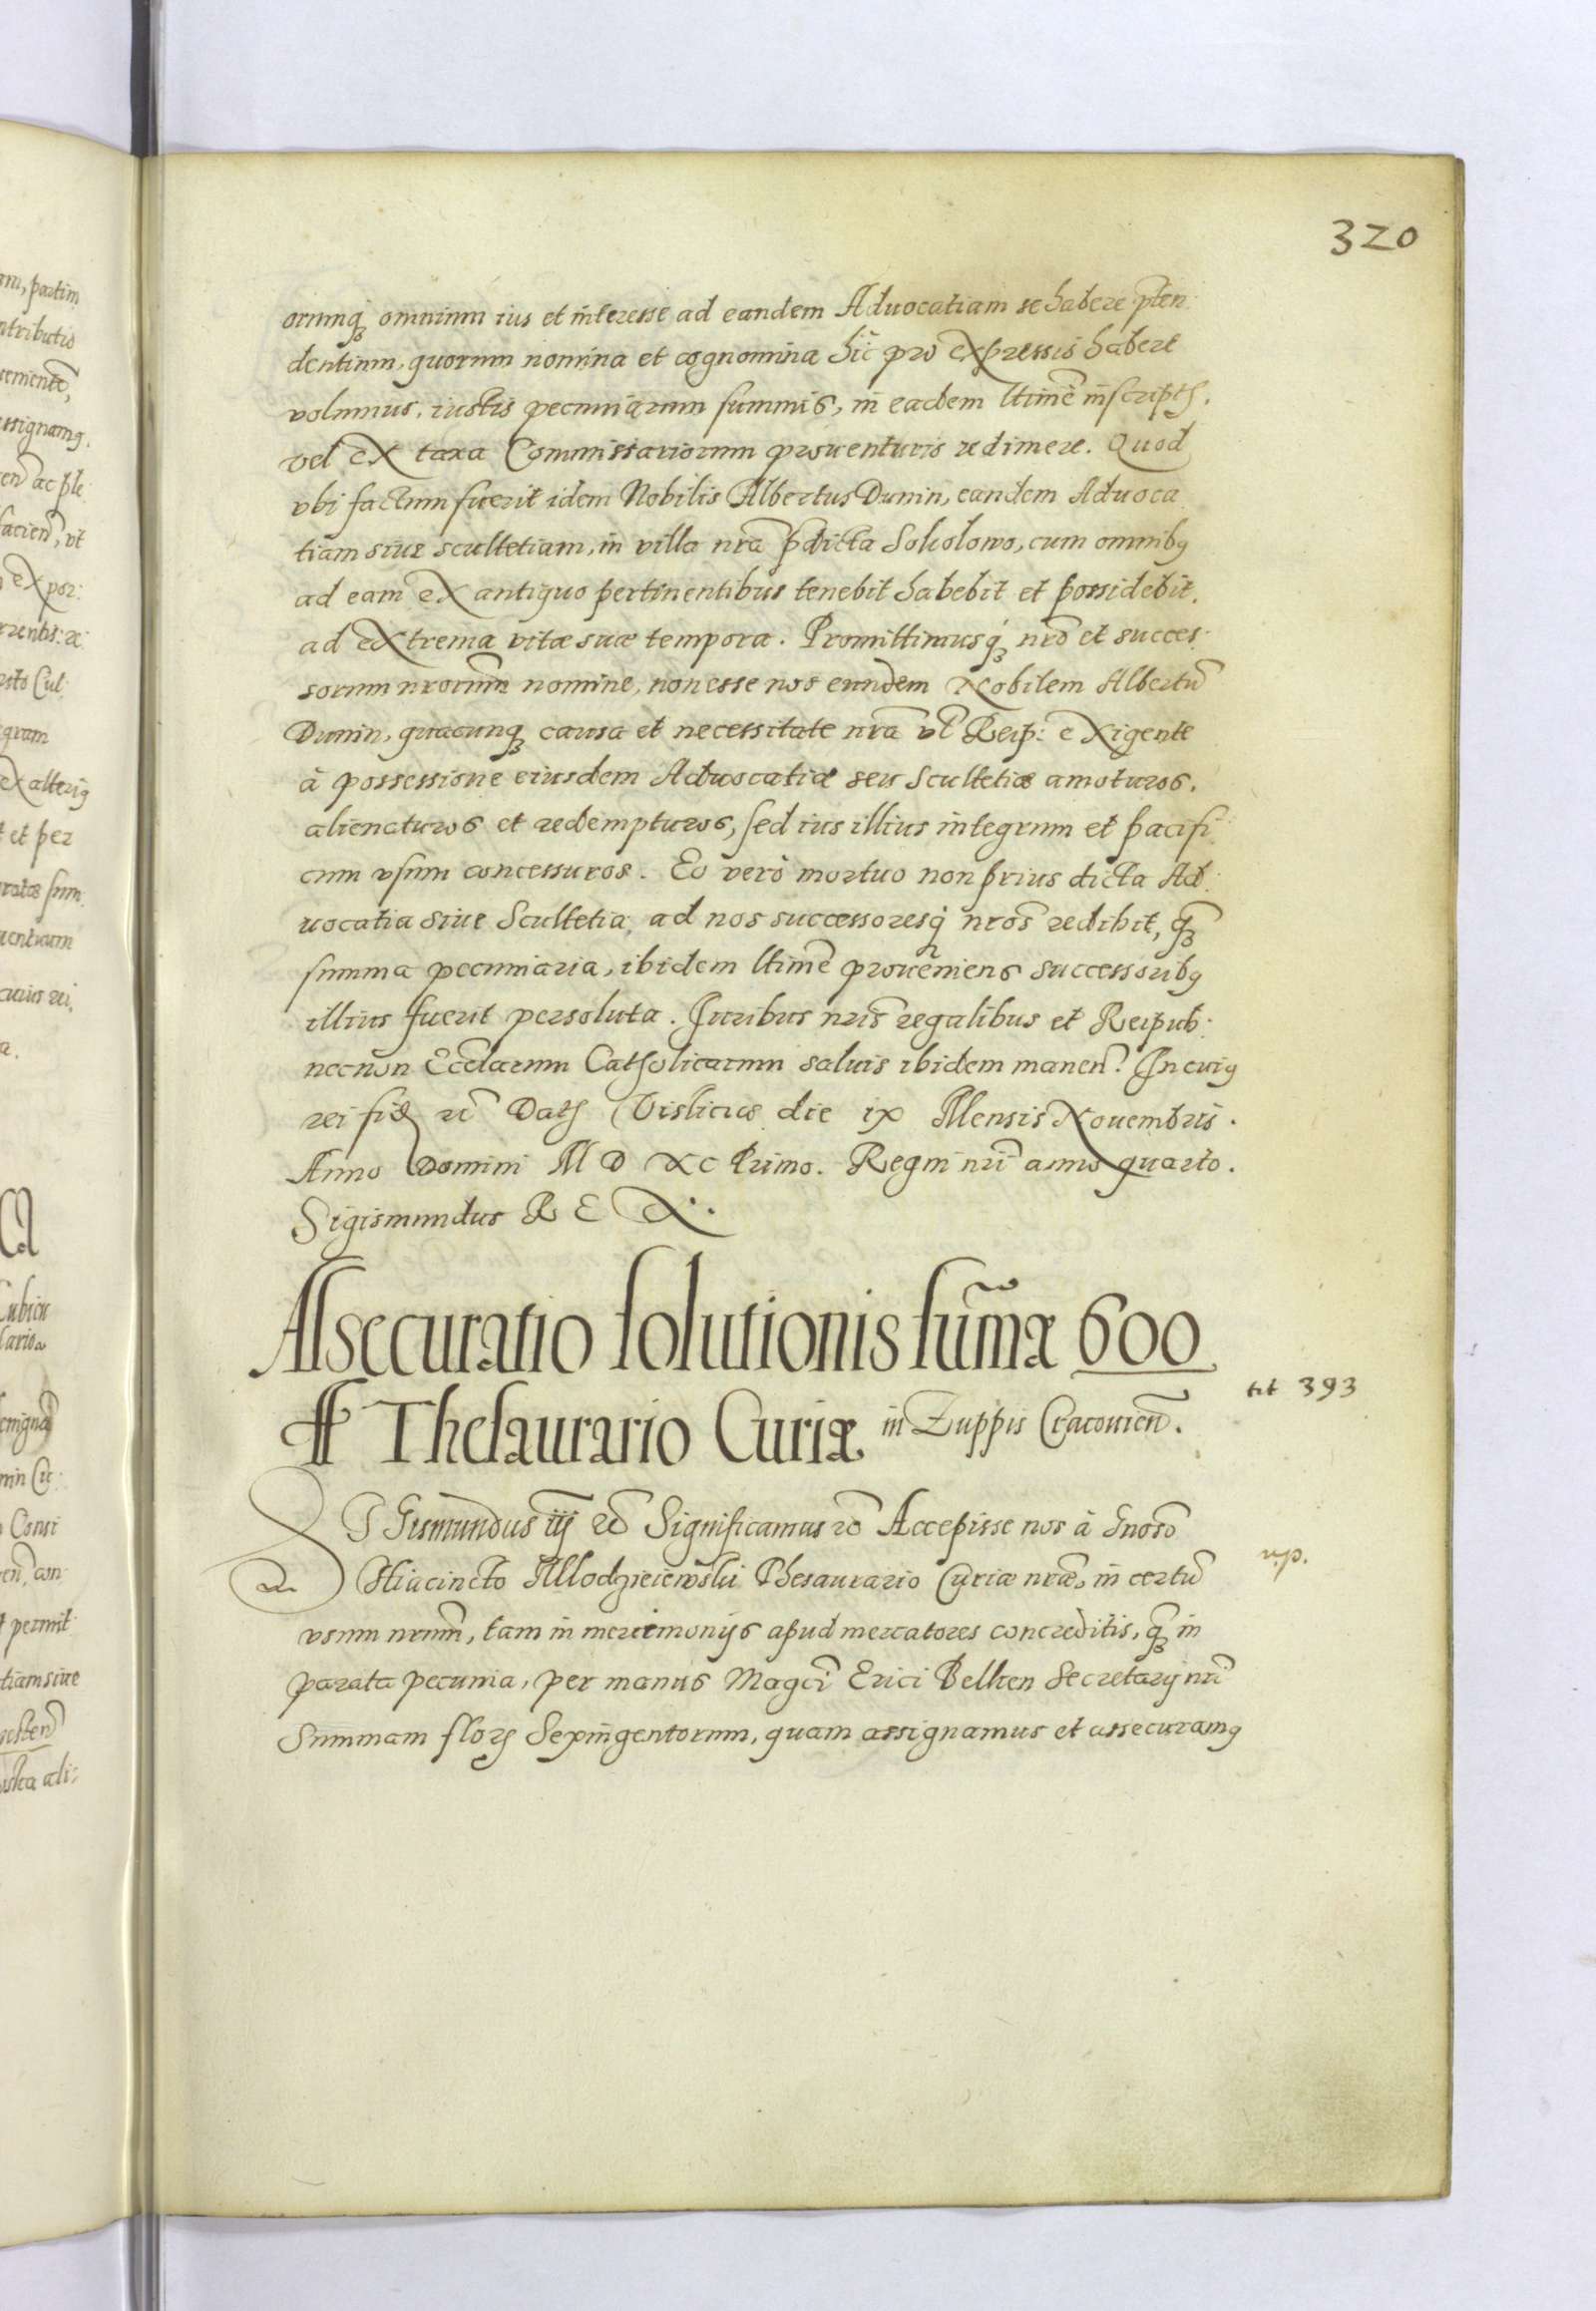 320
orumq₃ omnium ius et interesse ad eandem Aduocatiam se habere p̃ten:
dentium, quorum nomina et cognomina hic pro expressis habere
volumus, iustis pecuniarum summis, in eadem ltimẽ inscriptꝭ,
vel ex taxa Commissariorum prouenturis redimere. Quod
vbi factum fuerit idem Nobilis Albertus Dunin, eandem Aduoca
tiam siue scultetiam, in villa nr̃a p̃dicta Sokolowo, cum omnibꝰ
ad eam ex antiquo pertinentibus tenebit habebit et possidebit,
ad extrema vitæ suæ tempora. Promittimusq₃ nrõ et succes:
sorum nrorum̃ nomine, non esse nos eundem Nobilem Albertũ
Dunin, quacunq₃ causa et necessitate nr̃a vl̃ Reip: exigente
à possessione eiusdem Aduocatiæ seu Scultetiæ amoturos,
alienaturos et redempturos, sed ius illius integrum et pacifi:
cum vsum concessuros. Eo verò mortuo non prius dicta Ad:
uocatia siue Scultetia, ad nos successoresq₃ nros̃ redibit, q̃₃
summa pecuniaria, ibidem ltimẽ proueniens successoribꝰ
illius fuerit persoluta. Iuribus nris̃ regalibus et Reipub:
necnon Ecclãrum Catholicarum saluis ibidem manen̄. In cuiꝰ
rei fid̃ rc̃ Datꝭ Visliciæ die ix Mensis Nouembris.
Anno Domini M D XC Primo. Regni nrĩ anno quarto.
Sigismundus R E X.
Assecuratio solutionis sum̃æ 600
ff Thesaurario Curiæ in Zuppis Cracouien̄.
tit 393
SIGismundus iij rc̃ Significamus rc̃ Accepisse nos à Gnoso
Hiacincto Mlodzieiewski Thesaurario Curiæ nræ̃, in certũ
vsum nrum̃, tam in mercimoniis apud mercatores concreditis, q̃₃ in
parata pecunia, per manus Magcĩ Erici Belken Secretarij nrĩ
Summam florꝭ Sexingentorum, quam assignamus et assecuramꝰ